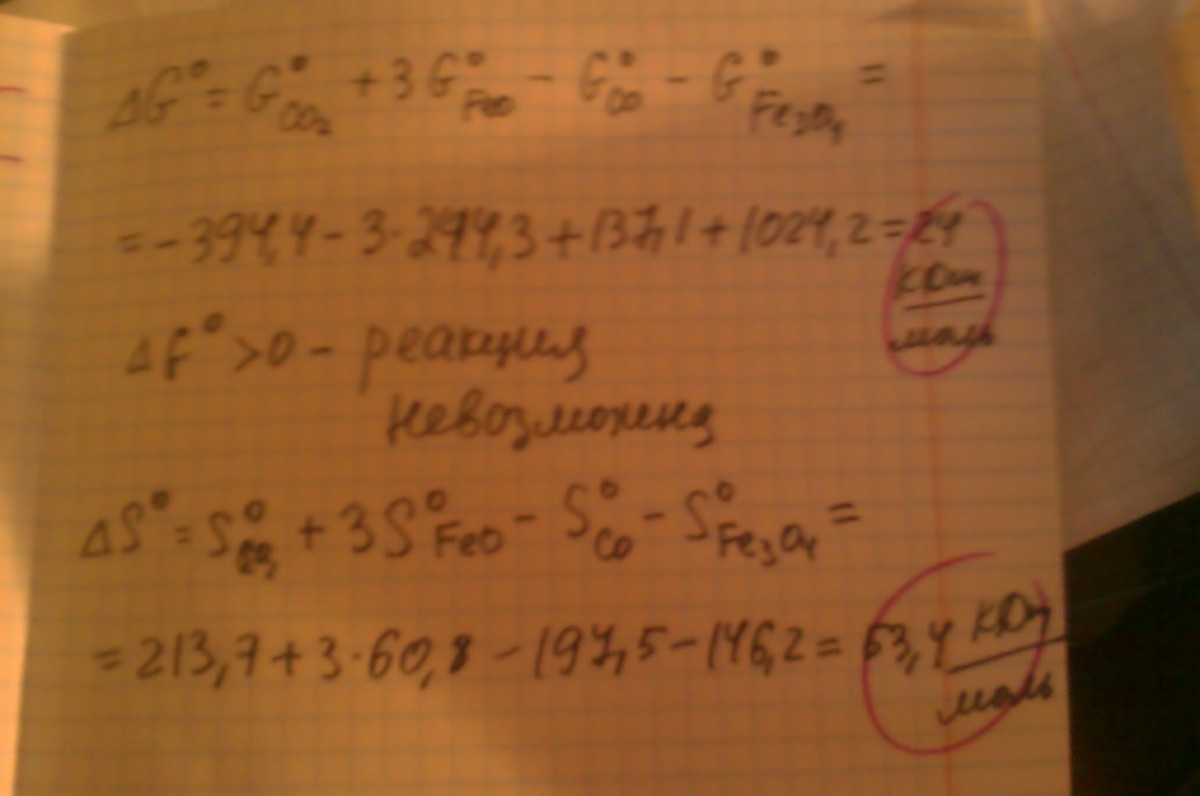 ΔG° = G°CO₂ + 3G°FeO − G°CO − G°Fe₃O₄ =
= − 394,4 − 3·244,3 + 137,1 + 1024,2 = 24 кДж/моль
ΔF° > 0 − реакция
невозможна
ΔS° = S°CO₂ + 3S°FeO − S°CO − S°Fe₃O₄ =
= 213,7 + 3·60,8 − 197,5 − 146,2 = 53,4 кДж/моль